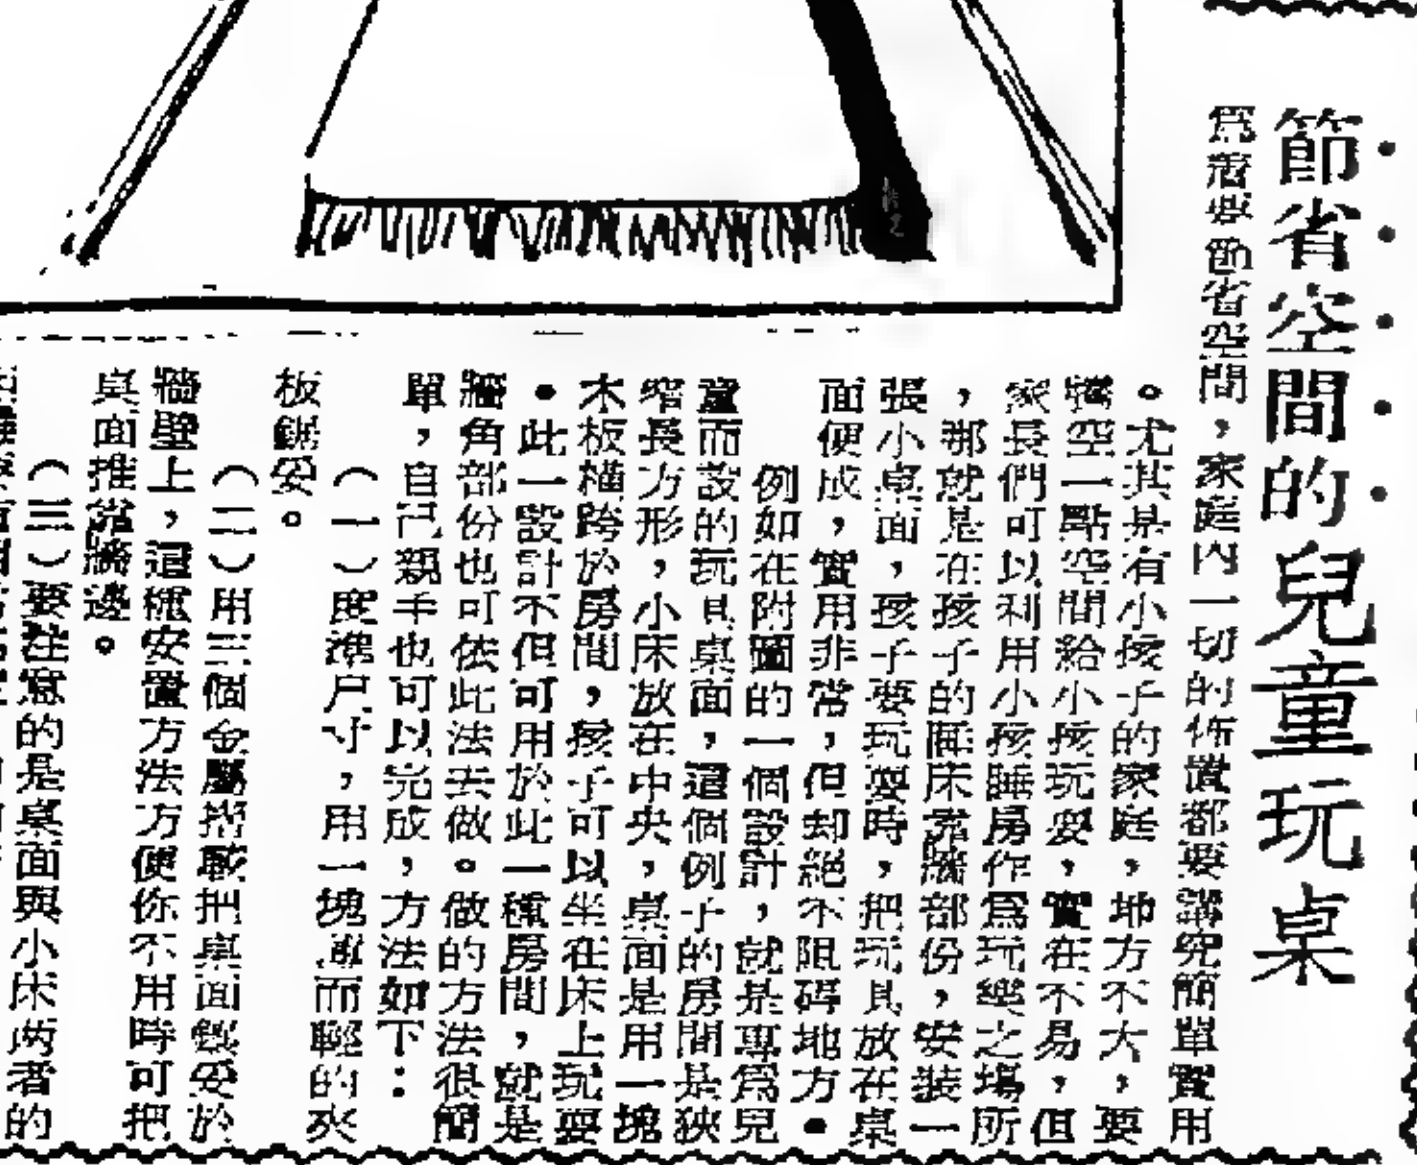 節省空間的兒童玩桌
爲着要節省空間，家庭內一切的佈置都要講究簡單實用
。尤其是有小孩子的家庭，地方不大，要
騰空一點空間給小孩玩耍，實在不易，但
家長們可以利用小孩睡房作爲玩樂之場所
，那就是在孩子的睡床靠牆部份，安裝一
張小桌面，孩子要玩耍時，把玩具放在桌
面便成，實用非常，但却絕不阻碍地方．
例如在附圖的一個設計，就是專爲兒
童而設的玩具桌面，這個例子的房間是狹
窄長方形，小床放在中央，桌面是用一塊
木板橫跨於房間，孩子可以坐在床上玩耍
．此一設計不但可用於此一種房間，就是
牆角部份也可依此法去做。做的方法很簡
單，自己親手也可以完成，方法如下：
（一）度準尺寸，用一塊專而輕的夾
板鋸妥。
（二）用三個金屬摺較把桌面鑲妥於
牆壁上，這種安置方法方便你不用時可把
桌面推靠牆邊。
（三）要注意的是桌面與小床两者的